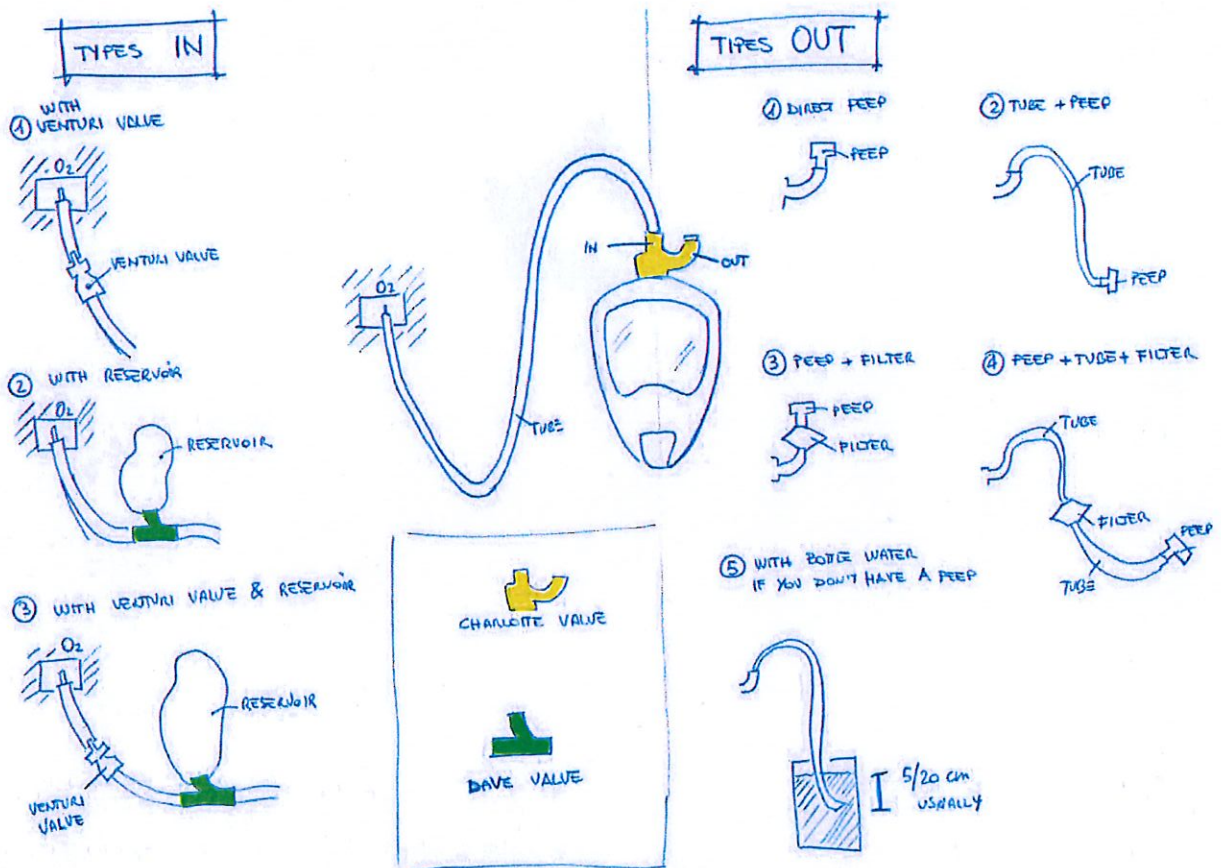 TYPES IN
① WITH
VENTURI VALVE
O₂
VENTURI VALVE
② WITH RESERVOIR
O₂
RESERVOIR
③ WITH VENTURI VALVE & RESERVOIR
O₂
RESERVOIR
VENTURI
VALVE
O₂
TUBE
IN
OUT
CHARLOTTE VALVE
DAVE VALVE
TIPES OUT
① DIRECT PEEP
PEEP
② TUBE + PEEP
TUBE
PEEP
③ PEEP + FILTER
PEEP
FILTER
④ PEEP + TUBE + FILTER
TUBE
FILTER
PEEP
TUBE
⑤ WITH BOTTLE WATER
IF YOU DON'T HAVE A PEEP
5/20 cm
USUALLY